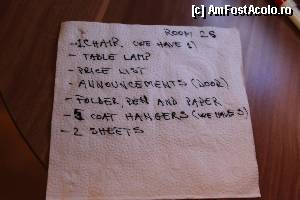 (c) AmFostAcolo.ro
ROOM 28
- 1CHAIR. (WE HAVE 1)
- TABLE LAMP
- PRICE LIST
- ANNOUNCEMENTS (DOOR)
- FOLDER, PEN AND PAPER
- 5 COAT HANGERS (WE HAVE 5)
- 2 SHEETS